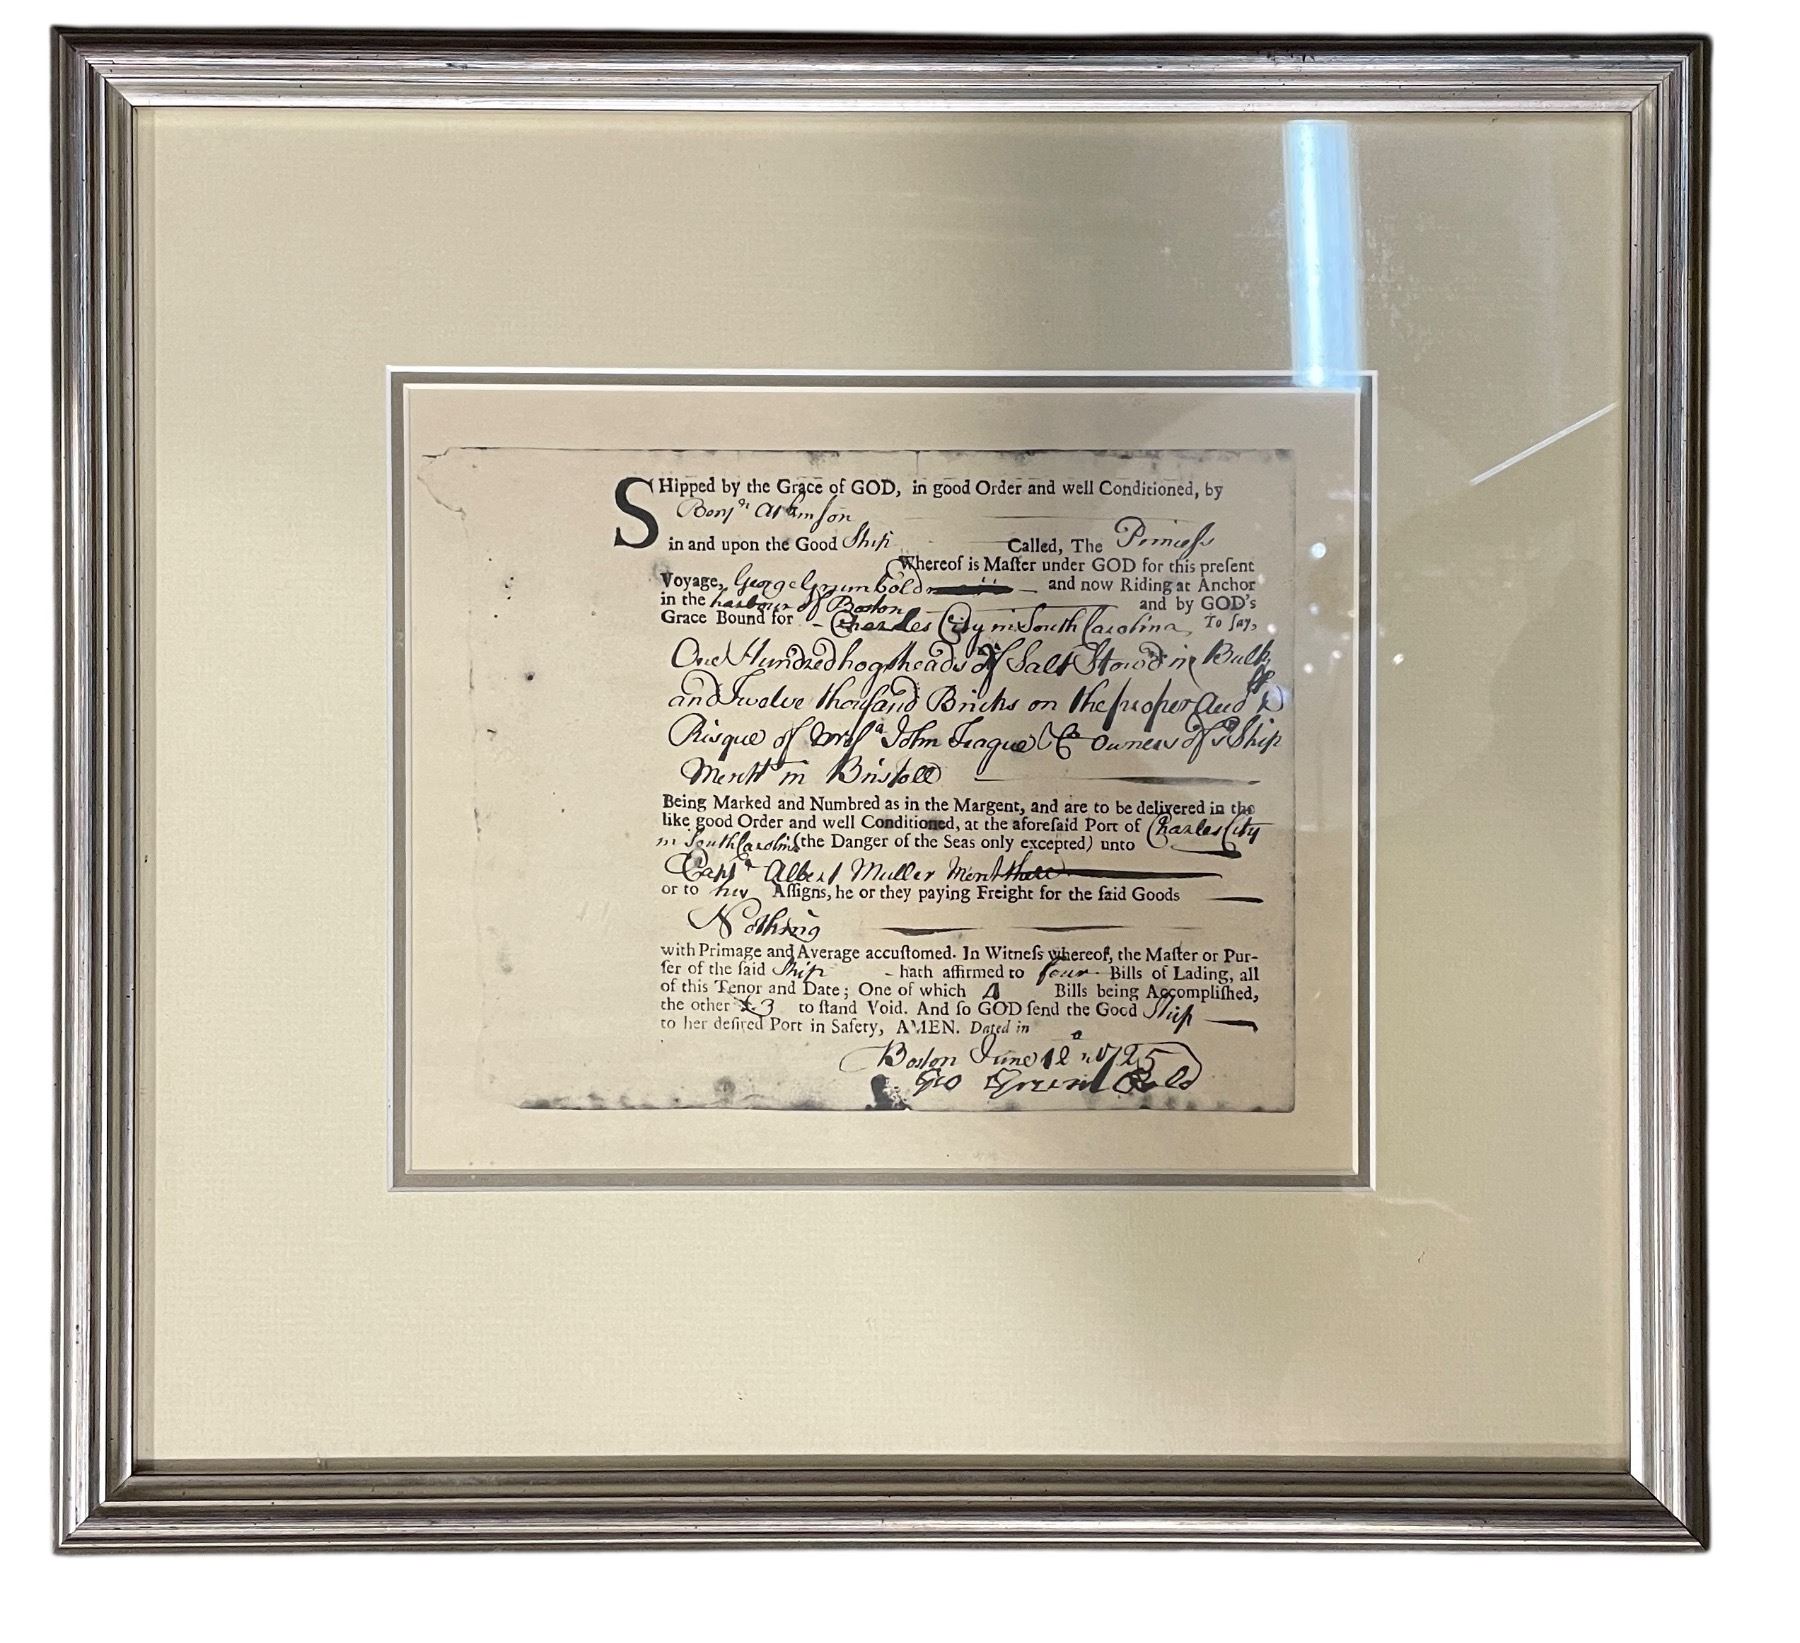 SHipped by the Grace of GOD, in good Order and well Conditioned, by
Benjn
in and upon the Good Ship Called, The Princeſs
Whereof is Maſter under GOD for this preſent
Voyage, George Grumbold and now Riding at Anchor
in the harbour of Boston and by GOD's
Grace Bound for Charles City in South Carolina To ſay,
One Hundred hogsheads of Salt Stowd in Bulk
and Twelve thouſand Bricks on the proper
Risque of John Teague & Co owners of sd Ship
Mercht in Bristoll
Being Marked and Numbred as in the Margent, and are to be delivered in the
like good Order and well Conditioned, at the aforeſaid Port of Charles City
in South Carolina (the Danger of the Seas only excepted) unto
Capt Albert Muller
or to his Aſſigns, he or they paying Freight for the ſaid Goods
Nothing
with Primage and Average accuſtomed. In Witneſs whereof, the Maſter or Pur-
ſer of the ſaid Ship hath affirmed to four Bills of Lading, all
of this Tenor and Date; One of which 4 Bills being Accompliſhed,
the other 3 to ſtand Void. And ſo GOD ſend the Good Ship
to her deſired Port in Safety, AMEN. Dated in
Boston June 12 1725
Geo Grumbold